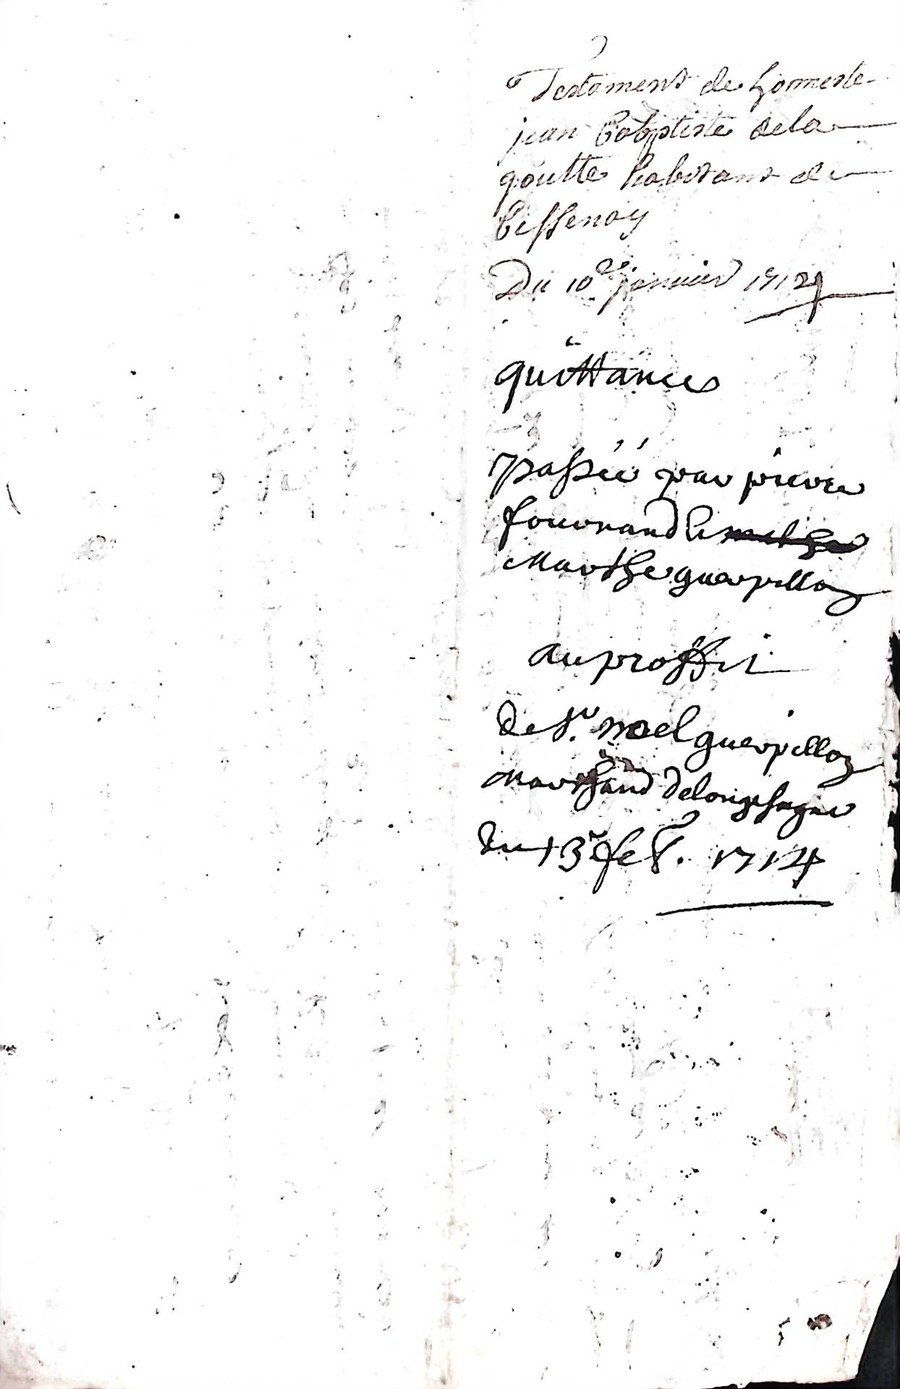 Testament de honneste
jean Babptiste dela
goutte habitant de
Bessenay
Du 10e janvier 1714
quittance
passéé par pierre
fournand &
Marthe guerpilloz
au proffit
de Sr. noel guerpilloz
Marchand de longessagne
du 13e feb. 1714